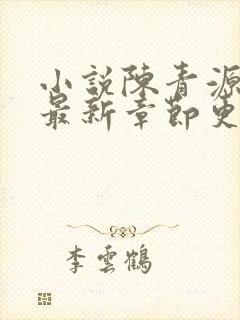 小說陳青源
最新章節更
李雲鶴